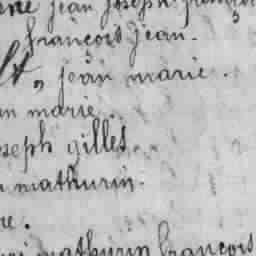 jean joseph
françois jean.
lt, jean marie.
n marie.
seph gilles.
mathurin.
re.
mathurin françois